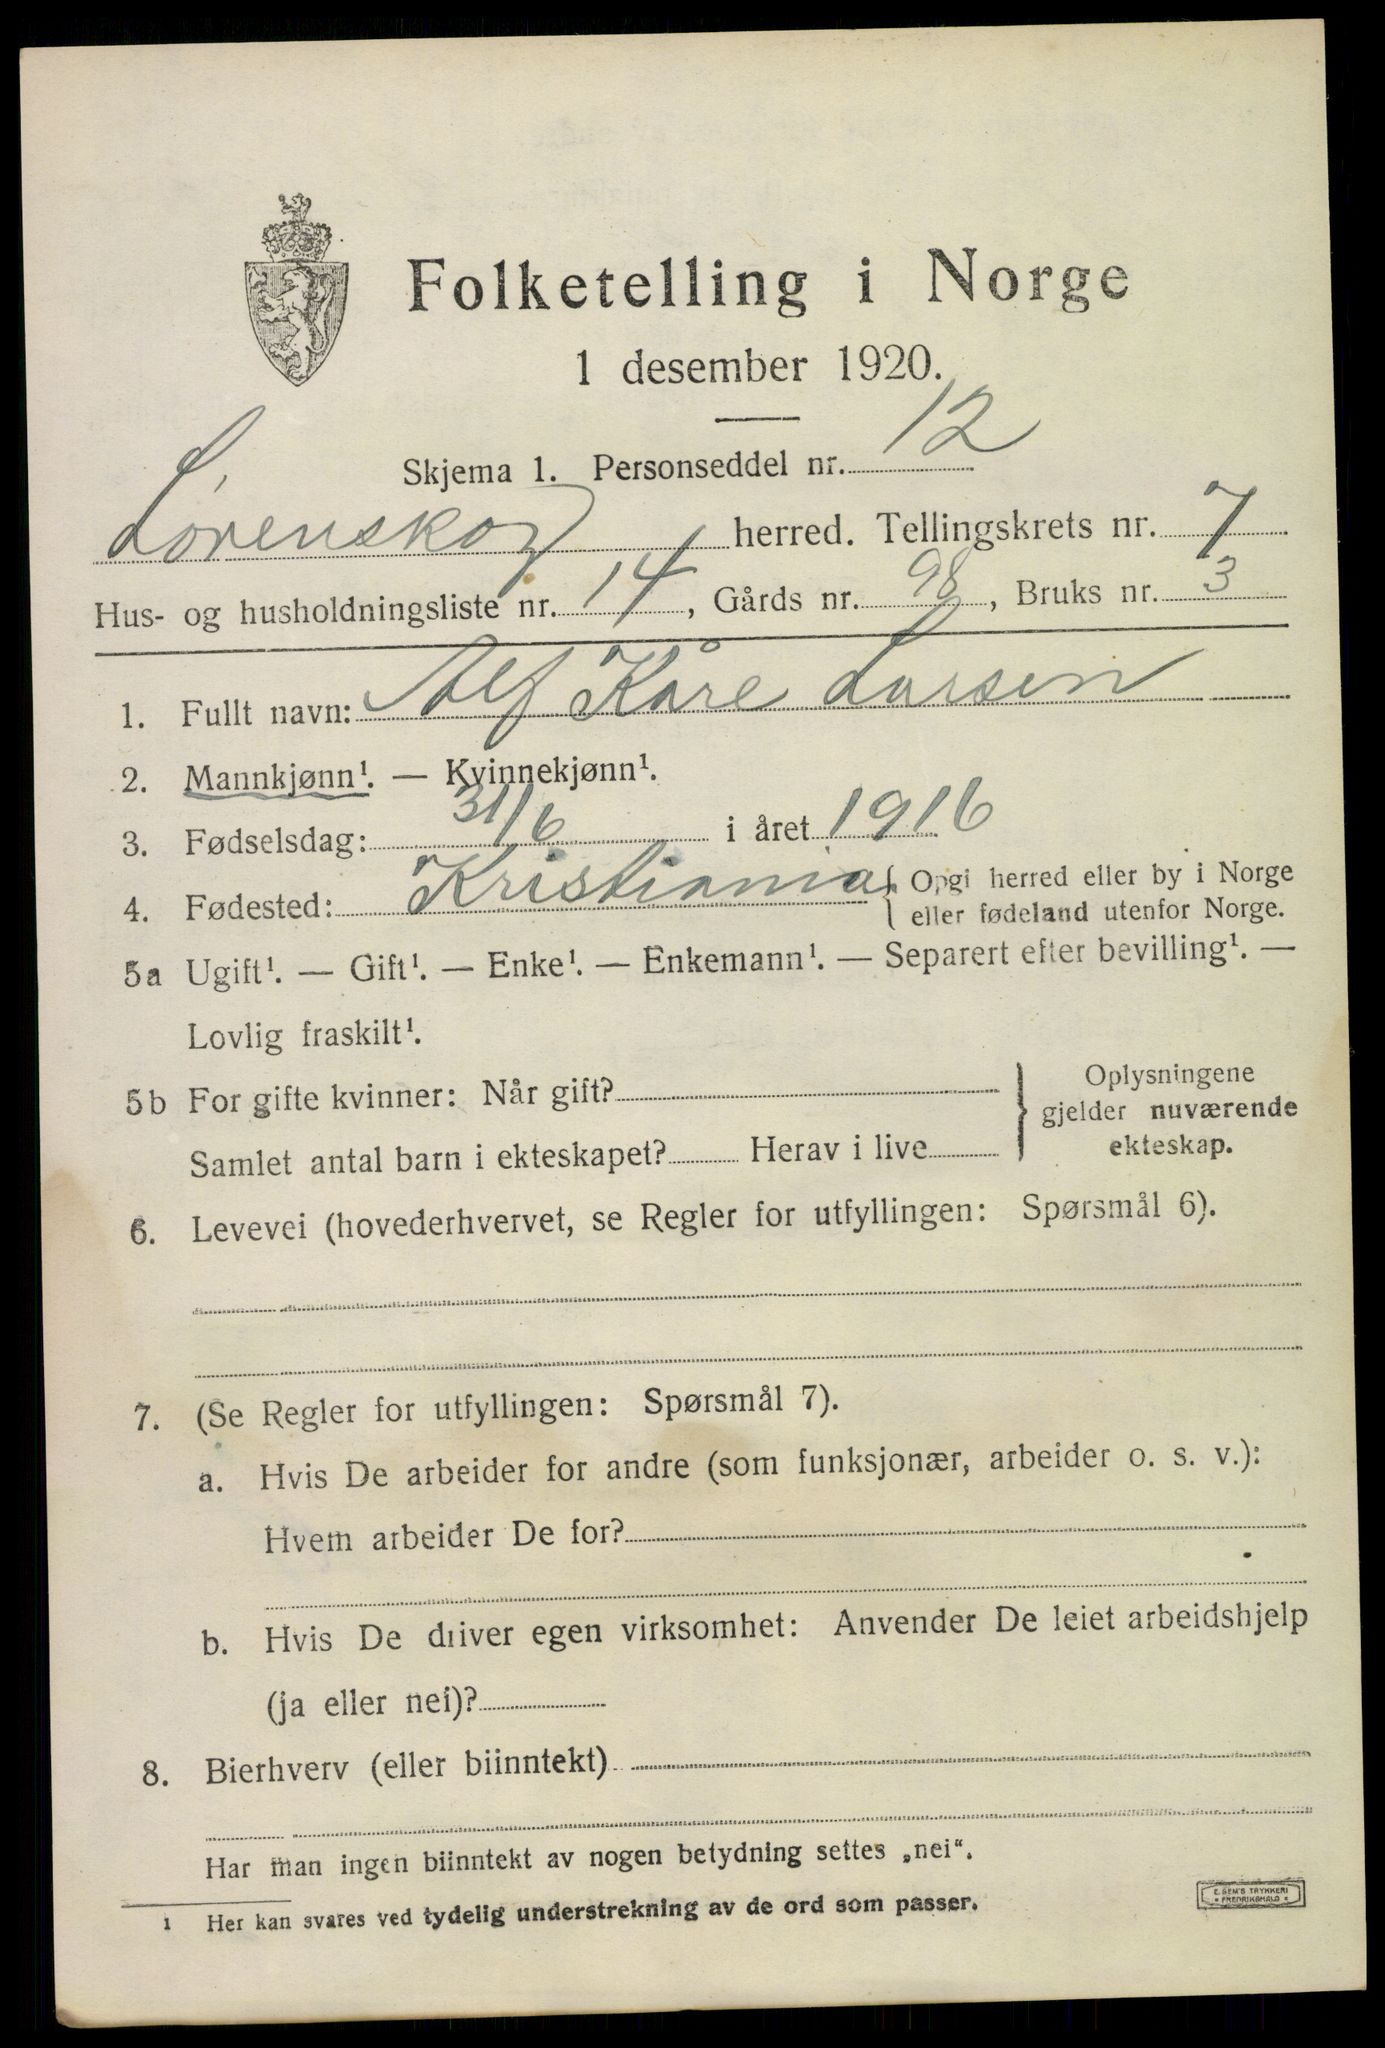 Folketelling i Norge
1 desember 1920.
Skjema 1. Personseddel nr. 12
Lørenskog herred. Tellingskrets nr. 7
Hus- og husholdningsliste nr. 14, Gårds nr. 98, Bruks nr. 3
1. Fullt navn: Alf Kåre Larsen
2. Mannkjønn¹. — Kvinnekjønn¹.
3. Fødselsdag: 31/6 i året 1916
4. Fødested: Kristiania { Opgi herred eller by i Norge
eller fødeland utenfor Norge.
5a Ugift¹. — Gift¹. — Enke¹. — Enkemann¹. — Separert efter bevilling¹. —
Lovlig fraskilt¹.
5b For gifte kvinner: Når gift?
Samlet antal barn i ekteskapet? Herav i live
} Oplysningene
gjelder nuværende
ekteskap.
6. Levevei (hovederhvervet, se Regler for utfyllingen: Spørsmål 6).
7. (Se Regler for utfyllingen: Spørsmål 7).
a. Hvis De arbeider for andre (som funksjonær, arbeider o. s. v.):
Hvem arbeider De for?
b. Hvis De driver egen virksomhet: Anvender De leiet arbeidshjelp
(ja eller nei)?
8. Bierhverv (eller biinntekt)
Har man ingen biinntekt av nogen betydning settes „nei“.
1 Her kan svares ved tydelig understrekning av de ord som passer.
E. SEM'S TRYKKERI
• FREDRIKSHALD •